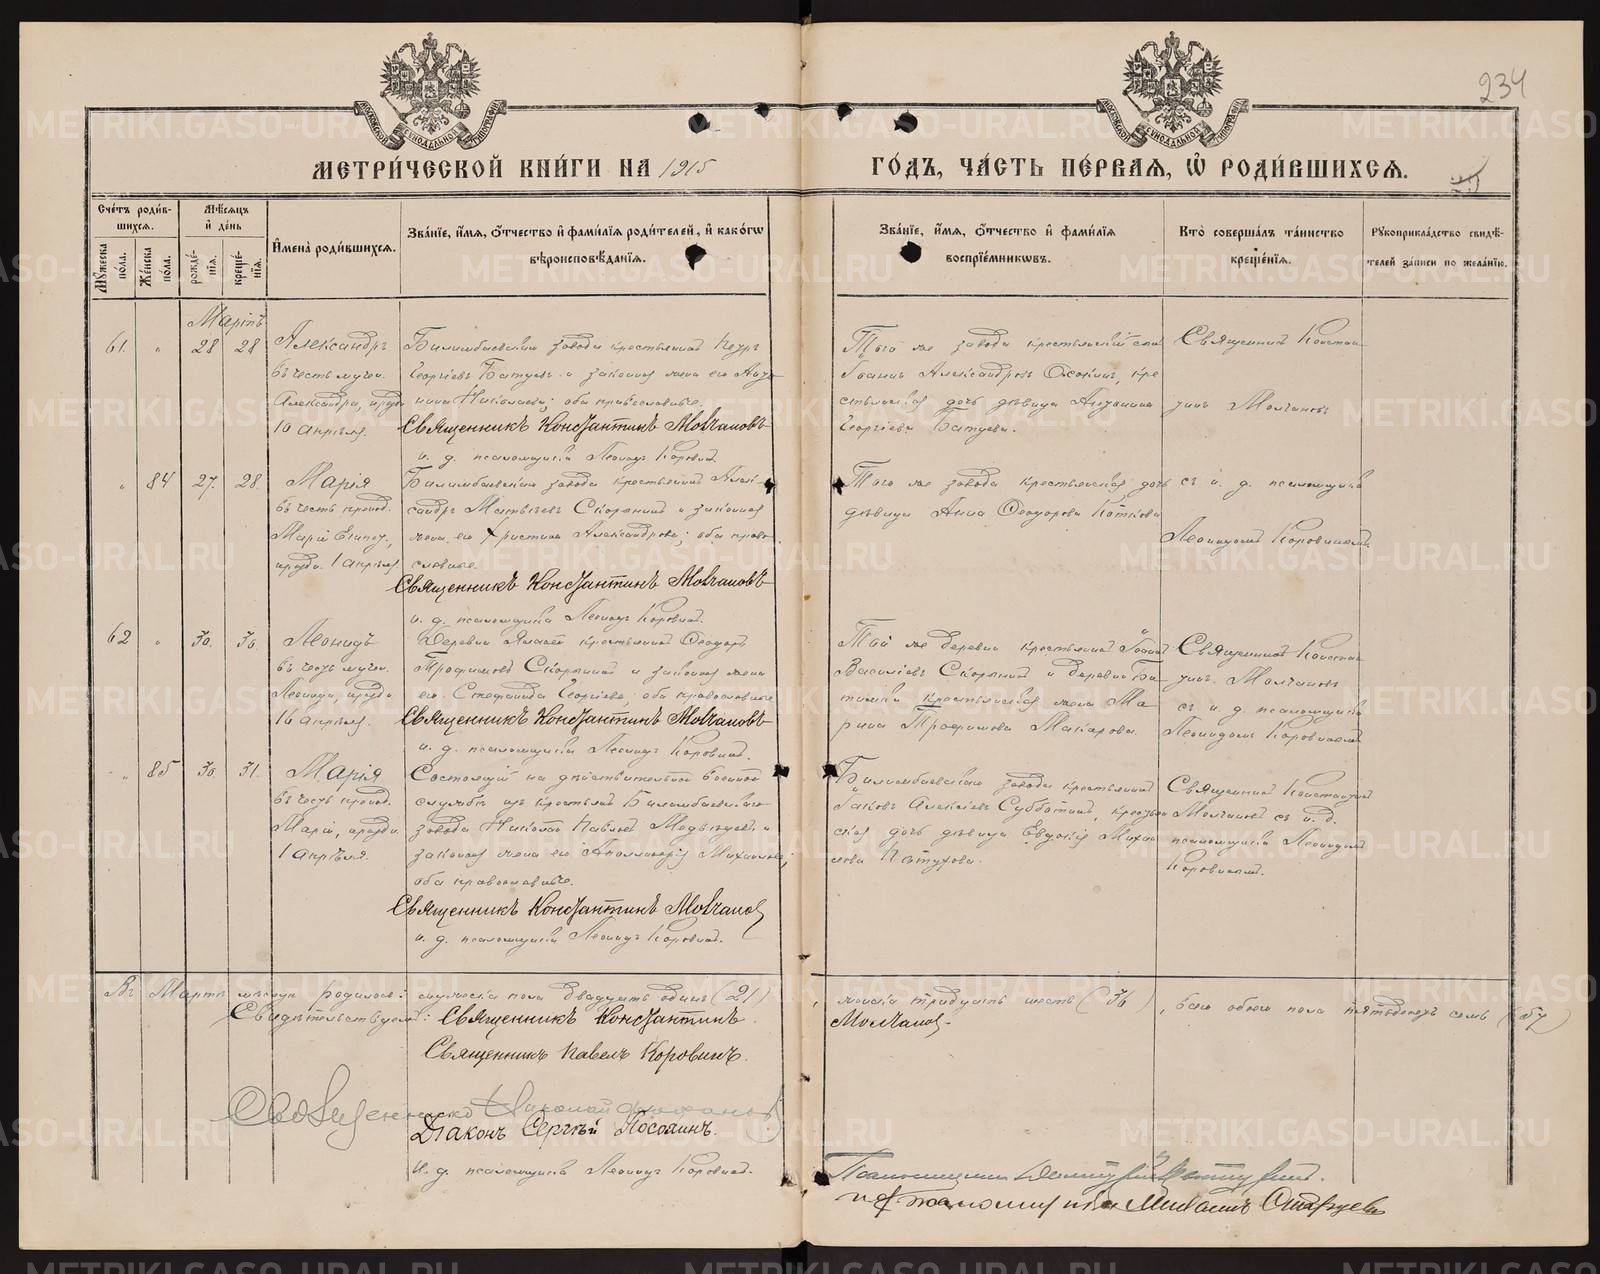 234
МЕТРИ́ЧЕСКОЙ КНИ́ГИ НА 1915 ГО́ДЪ, ЧА́СТЬ ПЕ́РВАЯ, Ѡ҆ РОДИ́ВШИХСЯ.
Сче́тъ роди́вшихся.
Мѣ́сяцъ и҆ де́нь
Мꙋ́жеска по́ла.
Же́нска по́ла.
рожде́нїя.
креще́нїя.
И҆мена̀ роди́вшихся.
Зва́нїе, и҆́мя, ѻ҆́тчество и҆ фами́лїя роди́телей, и҆ како́гѡ вѣроисповѣ́данїя.
Зва́нїе, и҆́мя, ѻ҆́тчество и҆ фами́лїя воспрїе́мникѡвъ.
Кто̀ соверша́лъ та́инство креще́нїя.
Рꙋкоприкла́дство свидѣ́телей за́писи по жела́нїю.
Мартъ
61. " 28 28
Александръ
въ честь мучен.
Александра, празд.
10 апрѣля.
Билимбаевскаго завода крестьянинъ Петръ
Георгіевъ Батуевъ и законная жена его
Николаева; оба православные.
Священникъ Константинъ Молчановъ
и. д. псаломщика Леонидъ Коровинъ.
Того же завода крестьянскій сынъ
Иванъ Александровъ Осокинъ, кре
стьянская дочь дѣвица Антонина
Георгіева Батуева.
Священникъ Констан
тинъ Молчановъ
" 84 27. 28.
Марія
въ честь препод.
Маріи Египет.,
празд. 1 апрѣля.
Билимбаевскаго завода крестьянинъ Алек-
сандръ Матвѣевъ Скорынинъ и законная
жена его Христина Александрова; оба право-
славные.
Священникъ Константинъ Молчановъ
и. д. псаломщика Леонидъ Коровинъ.
Того же завода крестьянская дочь
дѣвица Анна Ѳеодорова Коткова
съ и. д. псаломщика
Леонидомъ Коровинымъ.
62 " 30. 30.
Леонидъ
въ честь мучен.
Леонида, празд.
16 апрѣля.
Деревни крестьянинъ Ѳеодоръ
Трофимовъ Скорынинъ и законная жена
его Стефанида Георгіева оба православные
Священникъ Константинъ Молчановъ
и. д. псаломщика Леонидъ Коровинъ.
Той же деревни крестьянинъ Іоаннъ
Василіевъ Скорынинъ и деревни Би
крестьянская жена Ма-
рина Трофимова Макарова.
Священникъ Констан
тинъ Молчановъ
съ и. д. псаломщика
Леонидомъ Коровинымъ
" 85 30. 31.
Марія
въ честь препод.
Маріи, празд.
1 апрѣля.
Состоящій на дѣйствительной военной
службѣ изъ крестьянъ Билимбаевскаго
завода Николай Павловъ Медвѣдевъ и
законная жена его Аполлинарія Михаилова;
оба православные.
Священникъ Константинъ Молчановъ
и. д. псаломщика Леонидъ Коровинъ.
Билимбаевскаго завода крестьянинъ
Іаковъ Алексіевъ Субботинъ, крестьян
ская дочь дѣвица Евдокія Михаи
лова Пастухова.
Священникъ Константинъ
Молчановъ съ и. д.
псаломщика Леонидомъ
Коровинымъ.
Въ Мартѣ мѣсяцѣ родилось: мужеска пола двадцать одинъ (21), женска тридцать шесть (36), всего обоего пола пятьдесятъ семь (57)
Свидѣтельствуемъ: Священникъ Константинъ Молчановъ
Священникъ Павелъ Коровинъ.
Священникъ Николай
Діаконъ Сергѣй
И. д. псаломщика Леонидъ Коровинъ.
Псаломщикъ